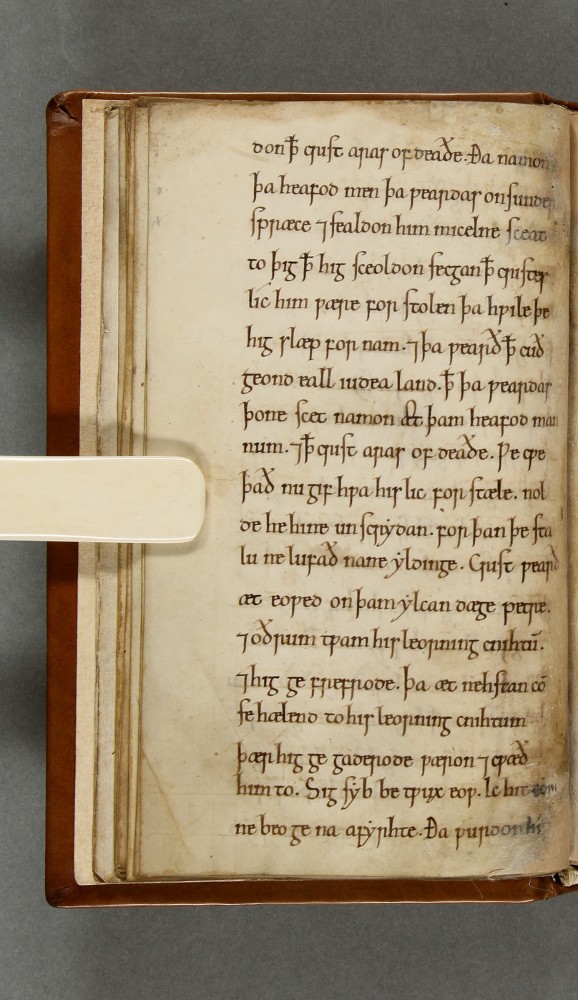 don ꝥ crist aras of deaðe. Ða namon
þa heafod men þa ƿeardas onsunder
spræce ⁊ sealdon him micelne sceat
to þig ꝥ hig sceoldon secgan ꝥ cristes
lic him ƿære for stolen þa hƿile þe
hig slæp for nam. ⁊ þa ƿearð ꝥ cuð
geond eall iudea land. ꝥ þa ƿeardas
þone scet namon æt þam heafod man
num. ⁊ ꝥ crist aras of deaðe. Ƿe cƿe
það nu gif hƿa his lic for stæle. nol
de he hine unscrẏdan. for þan þe sta
lu ne lufað nane ẏldinge. Crist ƿearð
æt eoƿed on þam ẏlcan dæge petre.
⁊ oðrum tƿam his leorning cnihtū.
⁊ hig ge frefrode. þa æt nehstan cō
se hælend to his leorning cnihtum
þær hig ge gaderode ƿæron ⁊ cƿæð
him to. Sig sẏb be tƿux eoƿ. Ic hit eom
ne beo ge na afẏrhte. Ða ƿurdon hi